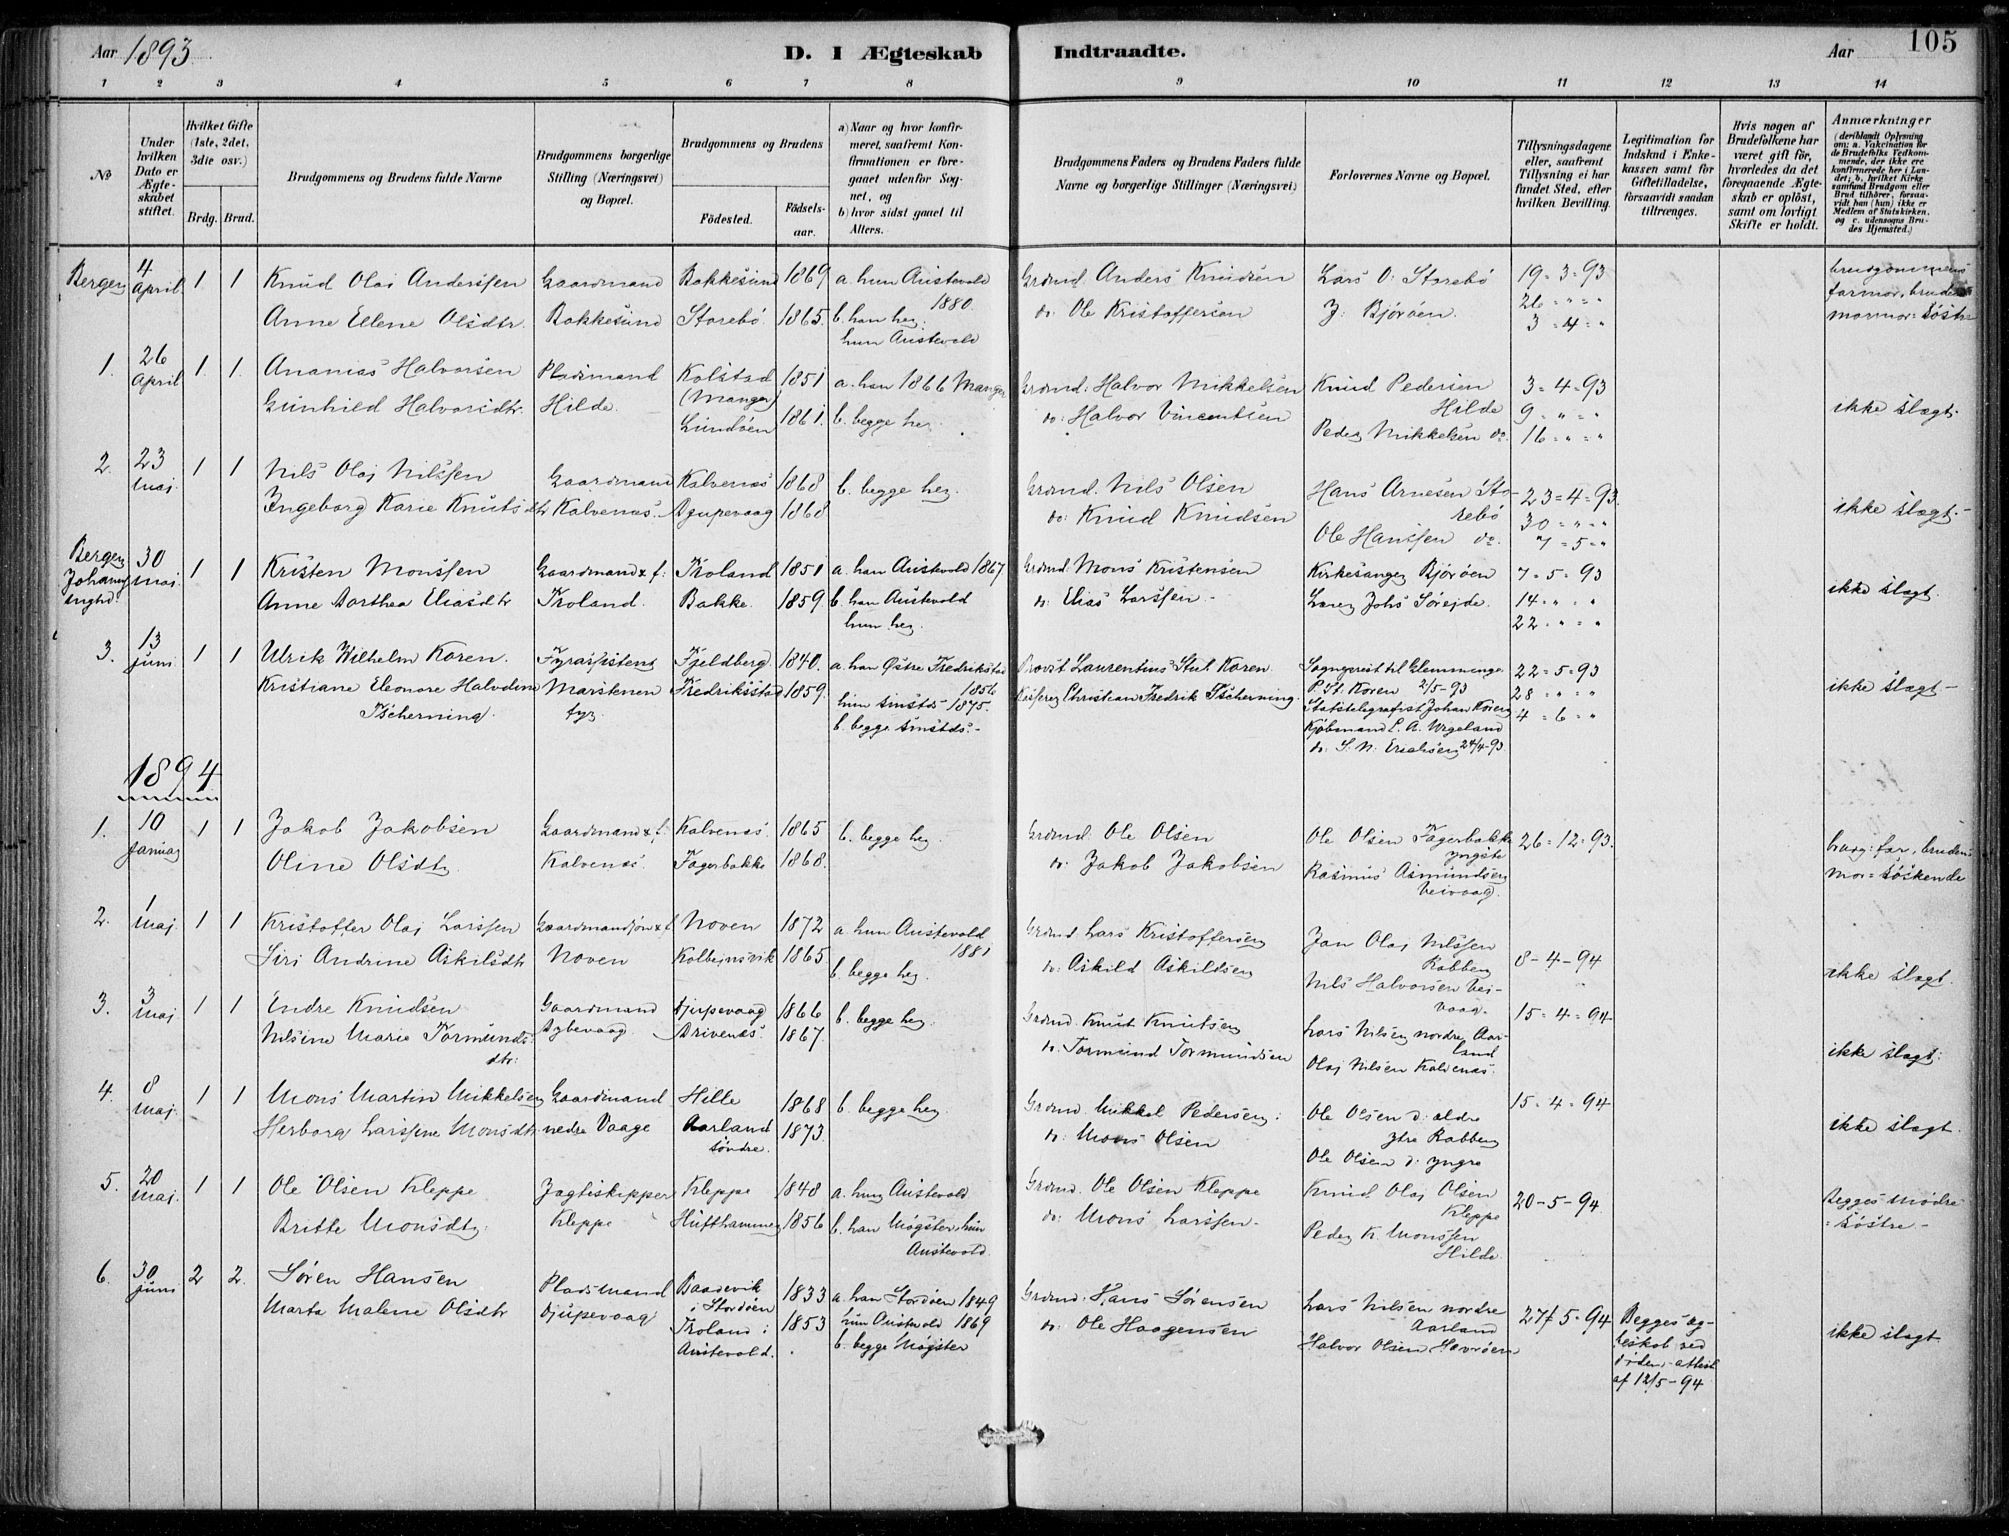 Aar 1893
D. I Ægteskab Indtraadte.
Aar 105
1 2 3 4 5 6 7 8 9 10 11 12 13 14
No
Under hvilken Dato er Ægteskabet stiftet.
Hvilket Gifte (1ste, 2det, 3die osv.)
Brdg. Brud.
Brudgommens og Brudens fulde Navne
Brudgommens borgerlige Stilling (Næringsvei) og Bopæl.
Brudgommens og Brudens
Födested.
Födselsaar.
a) Naar og hvor konfirmeret, saafremt Konfirmationen er foregaaet udenfor Sognet, og
b) hvor sidst gaaet til Alters.
Brudgommens Faders og Brudens Faders fulde Navne og borgerlige Stillinger (Næringsvei)
Forlovernes Navne og Bopæl.
Tillysningsdagene eller, saafremt Tillysning ei har fundet Sted, efter hvilken Bevilling.
Legitimation for Indskud i Enkekassen samt for Giftetilladelse, forsaavidt saadan tiltrænges.
Hvis nogen af Brudefolkene har været gift för, hvorledes da det foregaaende Ægteskab er oplöst, samt om lovligt Skifte er holdt.
Anmærkninger
(deriblandt Oplysning om: a. Vakcination for de Brudefolks Vedkommende, der ikke ere konfirmerede her i Landet; b. hvilket Kirkesamfund Brudgom eller Brud tilhörer, forsaavidt han (hun) ikke er Medlem af Statskirken, og c. udensogns Brudes Hjemsted.)
Bergen 4 April 1 1 Knud Olai Anderssen Gaardmand Bakkesund 1869 a. hun Austevold 1880
Anne Ellene Olsdtr. Bakkesund Storebö 1865. b. han her. hun Austevold
Grdmd. Anders Knudsen Lars O. Storebö 19=3=93 brudgommens farmor, brudens mormor = söstre
do Ole Kristoffersen J. Björöen. 26 = " = "
3 = 4 = "
1. 26 April 1. 1. Ananias Halvorsen Pladsmand Kolstad (Manger) 1851 a. han 1866 Manger
Gunhild Halvorsdtr. Hilde. Lundöen 1861. b. begge her.
Grdmd. Halvor Mikkelsen Knud Pedersen Hilde 3=4=93 ikke slægt.
do: Halvor Vincentsen Peder Mikkelsen do. 9 " = "
16 = " = "
2. 23 maj. 1 1 Nils Olaj Nilssen Gaardmand Kalvenæs 1868 b. begge her.
Ingeborg Karie Knutsdtr Kalvenæs. Djupevaag 1868
Grdmd. Nils Olsen Hans Arnesen Storebö 23=4=93. ikke slægt.-
do: Knud Knudsen Ole Hanssen do. 30 = " = "
7 = 5 = "
Bergen Johannes 30 maj. 1 1 Kristen Monssen Gaardmand & f: Troland 1851 a. han Austevold 1867
Anne Dorthea Eliasdtr Troland. Bakke 1859. b. han Austevold hun her.
Grdmd. Mons Kristensen Kirkesanger Björöen 7=5=93 ikke slægt.
do: Elias Larssen - Lærer Johs Sörejde. 14 = " = "
22 = " = "
3. 13 juni 1 1 Ulrik Wilhelm Koren. Fyrassistent Fjeldberg 1840. a. han Östre Fredrikstad 1856
Kristiane Eleonore Halvdine Tscherning. Marstenen fyr Fredriksstad 1859. hun smstds 1875. b. begge smstds.-
Provst Laurentius Stub Koren Sogneprest til Glemminge 22=5=93 ikke slægt -
Christian Fredrik Tscherning. P. St. Koren 2/5-93 28 " = "
Statstelegrafist Johan Koren 4 = 6 = "
Kjöbmand L. A. Urgeland
1894
1. 10 Januar 1 1 Jakob Jakobsen Gaardmand & f: Kalvenæs. 1865 b. begge her.
Oline Olsdtr. Kalvenæs. Fagerbakke 1868.
Grdmd. Ole Olsen Ole Olsen Fagerbakke yngste 26=12=93. brdg: far, brudens mor = söskende
do: Jakob Jakobsen Rasmus Asmundsen Veivaag.
2. 1 maj. 1 1 Kristoffer Olaj Larssen Gaardmandsön & f. Noven 1872 a hun Austevold 1881
Siri Andrine Askilsdtr Noven Kolbejnsvik 1865. b. begge her.
Grdmd. Lars Kristoffersen Jan Olaj Nilssen Rabben 8-4-94 ikke slægt.
do: Askild Askildsen Nils Halvorsen Veivaag.
3. 3 maj. 1 1 Endre Knudsen Gaardmand Djupevaag 1866 b. begge her.
Nilsine Marie Tormundsdtr: Dybevaag Drivenæs. 1867.
Grdmd. Knut Knutsen Lars Nilsen nordre Aarland 15=4=94 ikke slægt.
do. Tormund Tormundsen Olaj Nilsen Kalvenæs.
4. 8 maj. 1 1 Mons Martin Mikkelsen Gaardmand Hille 1868 b. begge her.
Herborg Larssine Monsdtr nedre Vaage Aarland söndre. 1873
Grdmd. Mikkel Pedersen. Ole Olsen d: ældre ytre Rabben 15=4=94 ikke slægt.
do: Mons Olsen Ole Olsen d. yngre
5. 20 maj. 1 1 Ole Olsen Kleppe Jagtskipper Kleppe 1848 a. hun Austevold
Britte Monsdtr. Kleppe Hufthammer 1856 b. han Mögster, hun Austevold.
Grdmd. Ole Olsen Kleppe Knud Olaj Olsen Kleppe 20-5-94 Begges mödre = söstre -
do: Mons Larssen - Peder K. Monssen Hilde.
6. 30 juni 2 2. Sören Hansen Pladsmand Baadevik i Stordöen 1833 a. han Stordöen 1849
Marte Malene Olsdtr Djupevaag Troland i Austevold. 1853 hun Austevold 1869 b. begge Mögster
Grdmd: Hans Sörensen Lars Nilsen nordre Aarland 27/5-94 Begges ægteskab ved döden, attest af 12/5-94 ikke slægt
do: Ole Haagensen Halvor Olsen Havröen